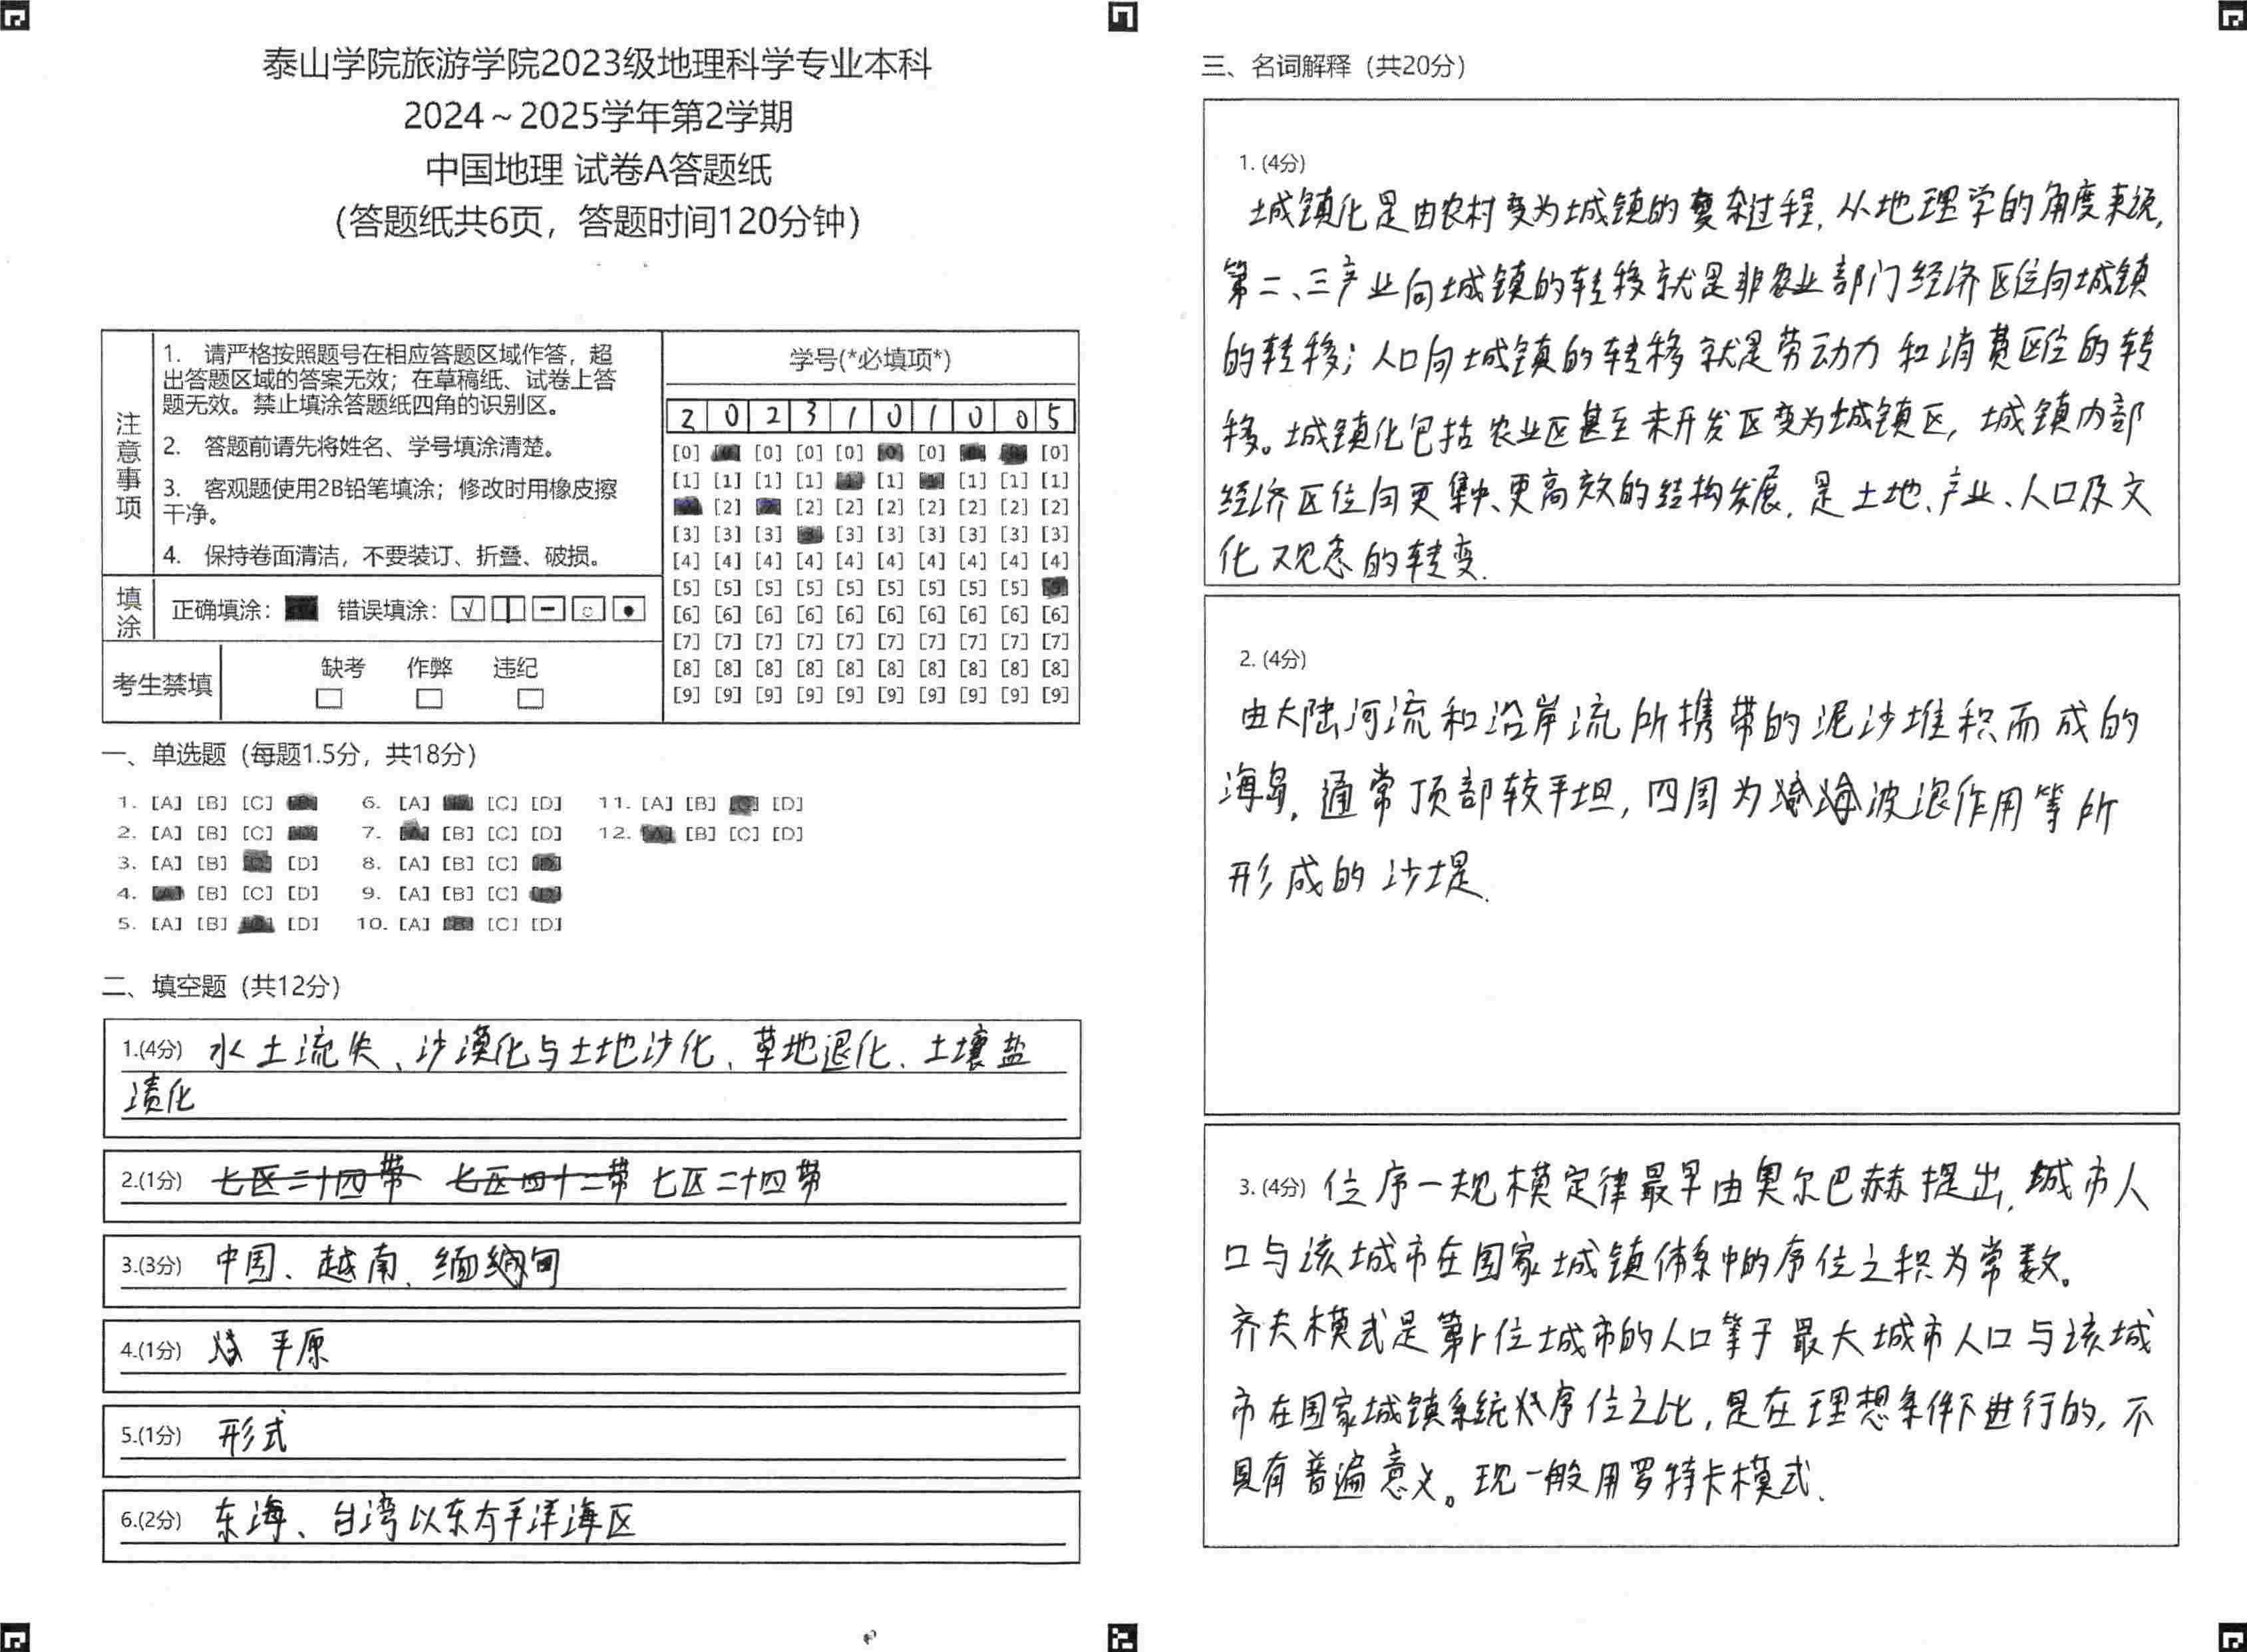 泰山学院旅游学院2023级地理科学专业本科
2024～2025学年第2学期
中国地理 试卷A答题纸
（答题纸共6页，答题时间120分钟）
注意事项
1. 请严格按照题号在相应答题区域作答，超
出答题区域的答案无效；在草稿纸、试卷上答
题无效。禁止填涂答题纸四角的识别区。
2. 答题前请先将姓名、学号填涂清楚。
3. 客观题使用2B铅笔填涂；修改时用橡皮擦
干净。
4. 保持卷面清洁，不要装订、折叠、破损。
填涂
正确填涂： 错误填涂：
考生禁填
缺考 作弊 违纪
学号(*必填项*)
2 0 2 3 1 0 1 0 0 5
[0] [0] [0] [0] [0] [0]
[1] [1] [1] [1] [1] [1] [1] [1]
[2] [2] [2] [2] [2] [2] [2] [2]
[3] [3] [3] [3] [3] [3] [3] [3] [3]
[4] [4] [4] [4] [4] [4] [4] [4] [4] [4]
[5] [5] [5] [5] [5] [5] [5] [5] [5]
[6] [6] [6] [6] [6] [6] [6] [6] [6] [6]
[7] [7] [7] [7] [7] [7] [7] [7] [7] [7]
[8] [8] [8] [8] [8] [8] [8] [8] [8] [8]
[9] [9] [9] [9] [9] [9] [9] [9] [9] [9]
一、单选题（每题1.5分，共18分）
1. [A] [B] [C] 6. [A] [C] [D] 11. [A] [B] [D]
2. [A] [B] [C] 7. [B] [C] [D] 12. [B] [C] [D]
3. [A] [B] [D] 8. [A] [B] [C]
4. [B] [C] [D] 9. [A] [B] [C]
5. [A] [B] [D] 10. [A] [C] [D]
二、填空题（共12分）
1.(4分) 水土流失、沙漠化与土地沙化、草地退化、土壤盐
渍化
2.(1分) 七区二十四带 七区四十二带 七区二十四带
3.(3分) 中国、越南、缅甸
4.(1分) 平原
5.(1分) 形式
6.(2分) 东海、台湾以东太平洋海区
三、名词解释（共20分）
1. (4分)
城镇化是由农村变为城镇的复杂过程，从地理学的角度来说，
第二、三产业向城镇的转移就是非农业部门经济区位向城镇
的转移；人口向城镇的转移就是劳动力和消费区位的转
移。城镇化包括农业区甚至未开发区变为城镇区，城镇内部
经济区位向更集中、更高效的结构发展，是土地、产业、人口及文
化观念的转变.
2. (4分)
由大陆河流和沿岸流所携带的泥沙堆积而成的
海岛，通常顶部较平坦，四周为海波浪作用等所
形成的沙堤.
3. (4分) 位序一规模定律最早由奥尔巴赫提出，城市人
口与该城市在国家城镇体系中的序位之积为常数。
齐夫模式是第r位城市的人口等于最大城市人口与该城
市在国家城镇系统序位之比，是在理想条件下进行的，不
具有普遍意义。现一般用罗特卡模式.